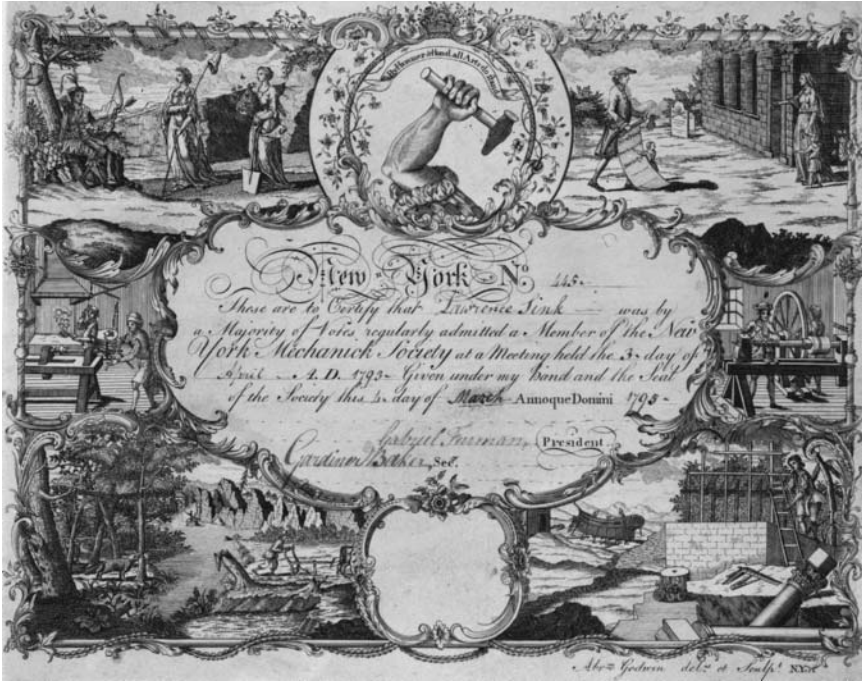 By Hammer & Hand all Arts do stand
New York No 445.
These are to Certify that Lawrence Sink was by
a Majority of Votes, regularly admitted a Member of the New
York Mechanick Society at a Meeting held the 3 day of
April A. D. 1793 Given under my Hand and the Seal
of the Society this 4 day of March Annoque Domini 1795
Gabriel Furman, President
Gardiner Baker, Sec.
Abrm Godwin delin et Sculpt NY